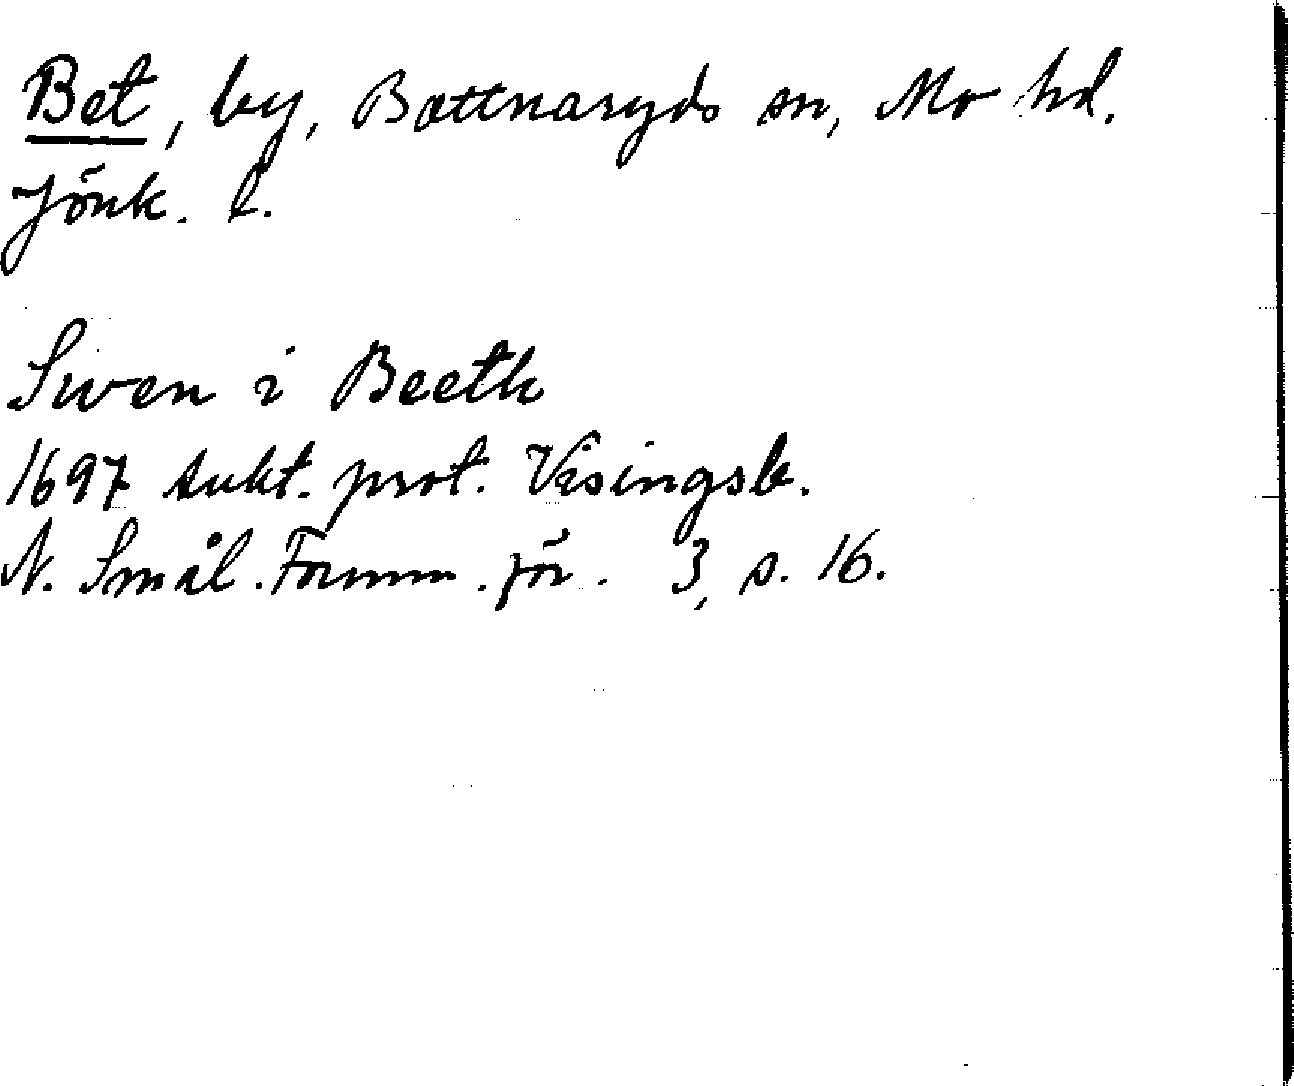 Bet, by, Bottnaryds sn, Mo hd.
Jönk. l.
Swen i Beeth
1697 dukt. prot. Visingsb.
N. Smål. Fornm. för. 3, s. 16.